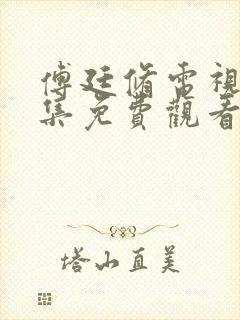 傅廷脩電視
集免費觀看
塔山直美